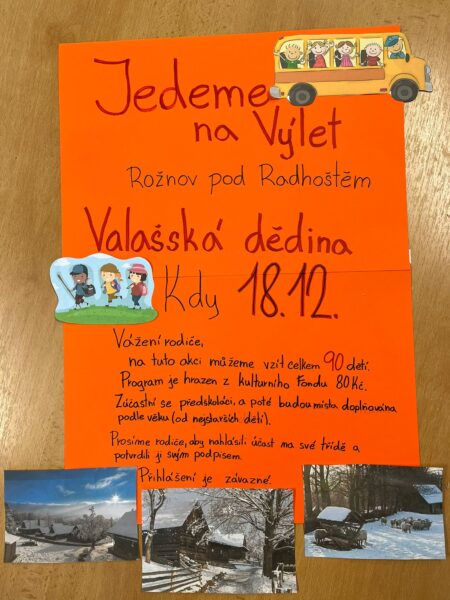 Jedeme
na Výlet
Rožnov pod Radhoštěm
Valašská dědina
Kdy 18.12.
Vážení rodiče,
na tuto akci můžeme vzít celkem 90 dětí.
Program je hrazen z kulturního Fondu 80Kč.
Zúčastní se předškoláci, a poté budou místa doplňována
podle věku (od nejstarších dětí).
Prosíme rodiče, aby nahlásili účast na své třídě a
potvrdili ji svým podpisem.
Přihlášení je závazné.